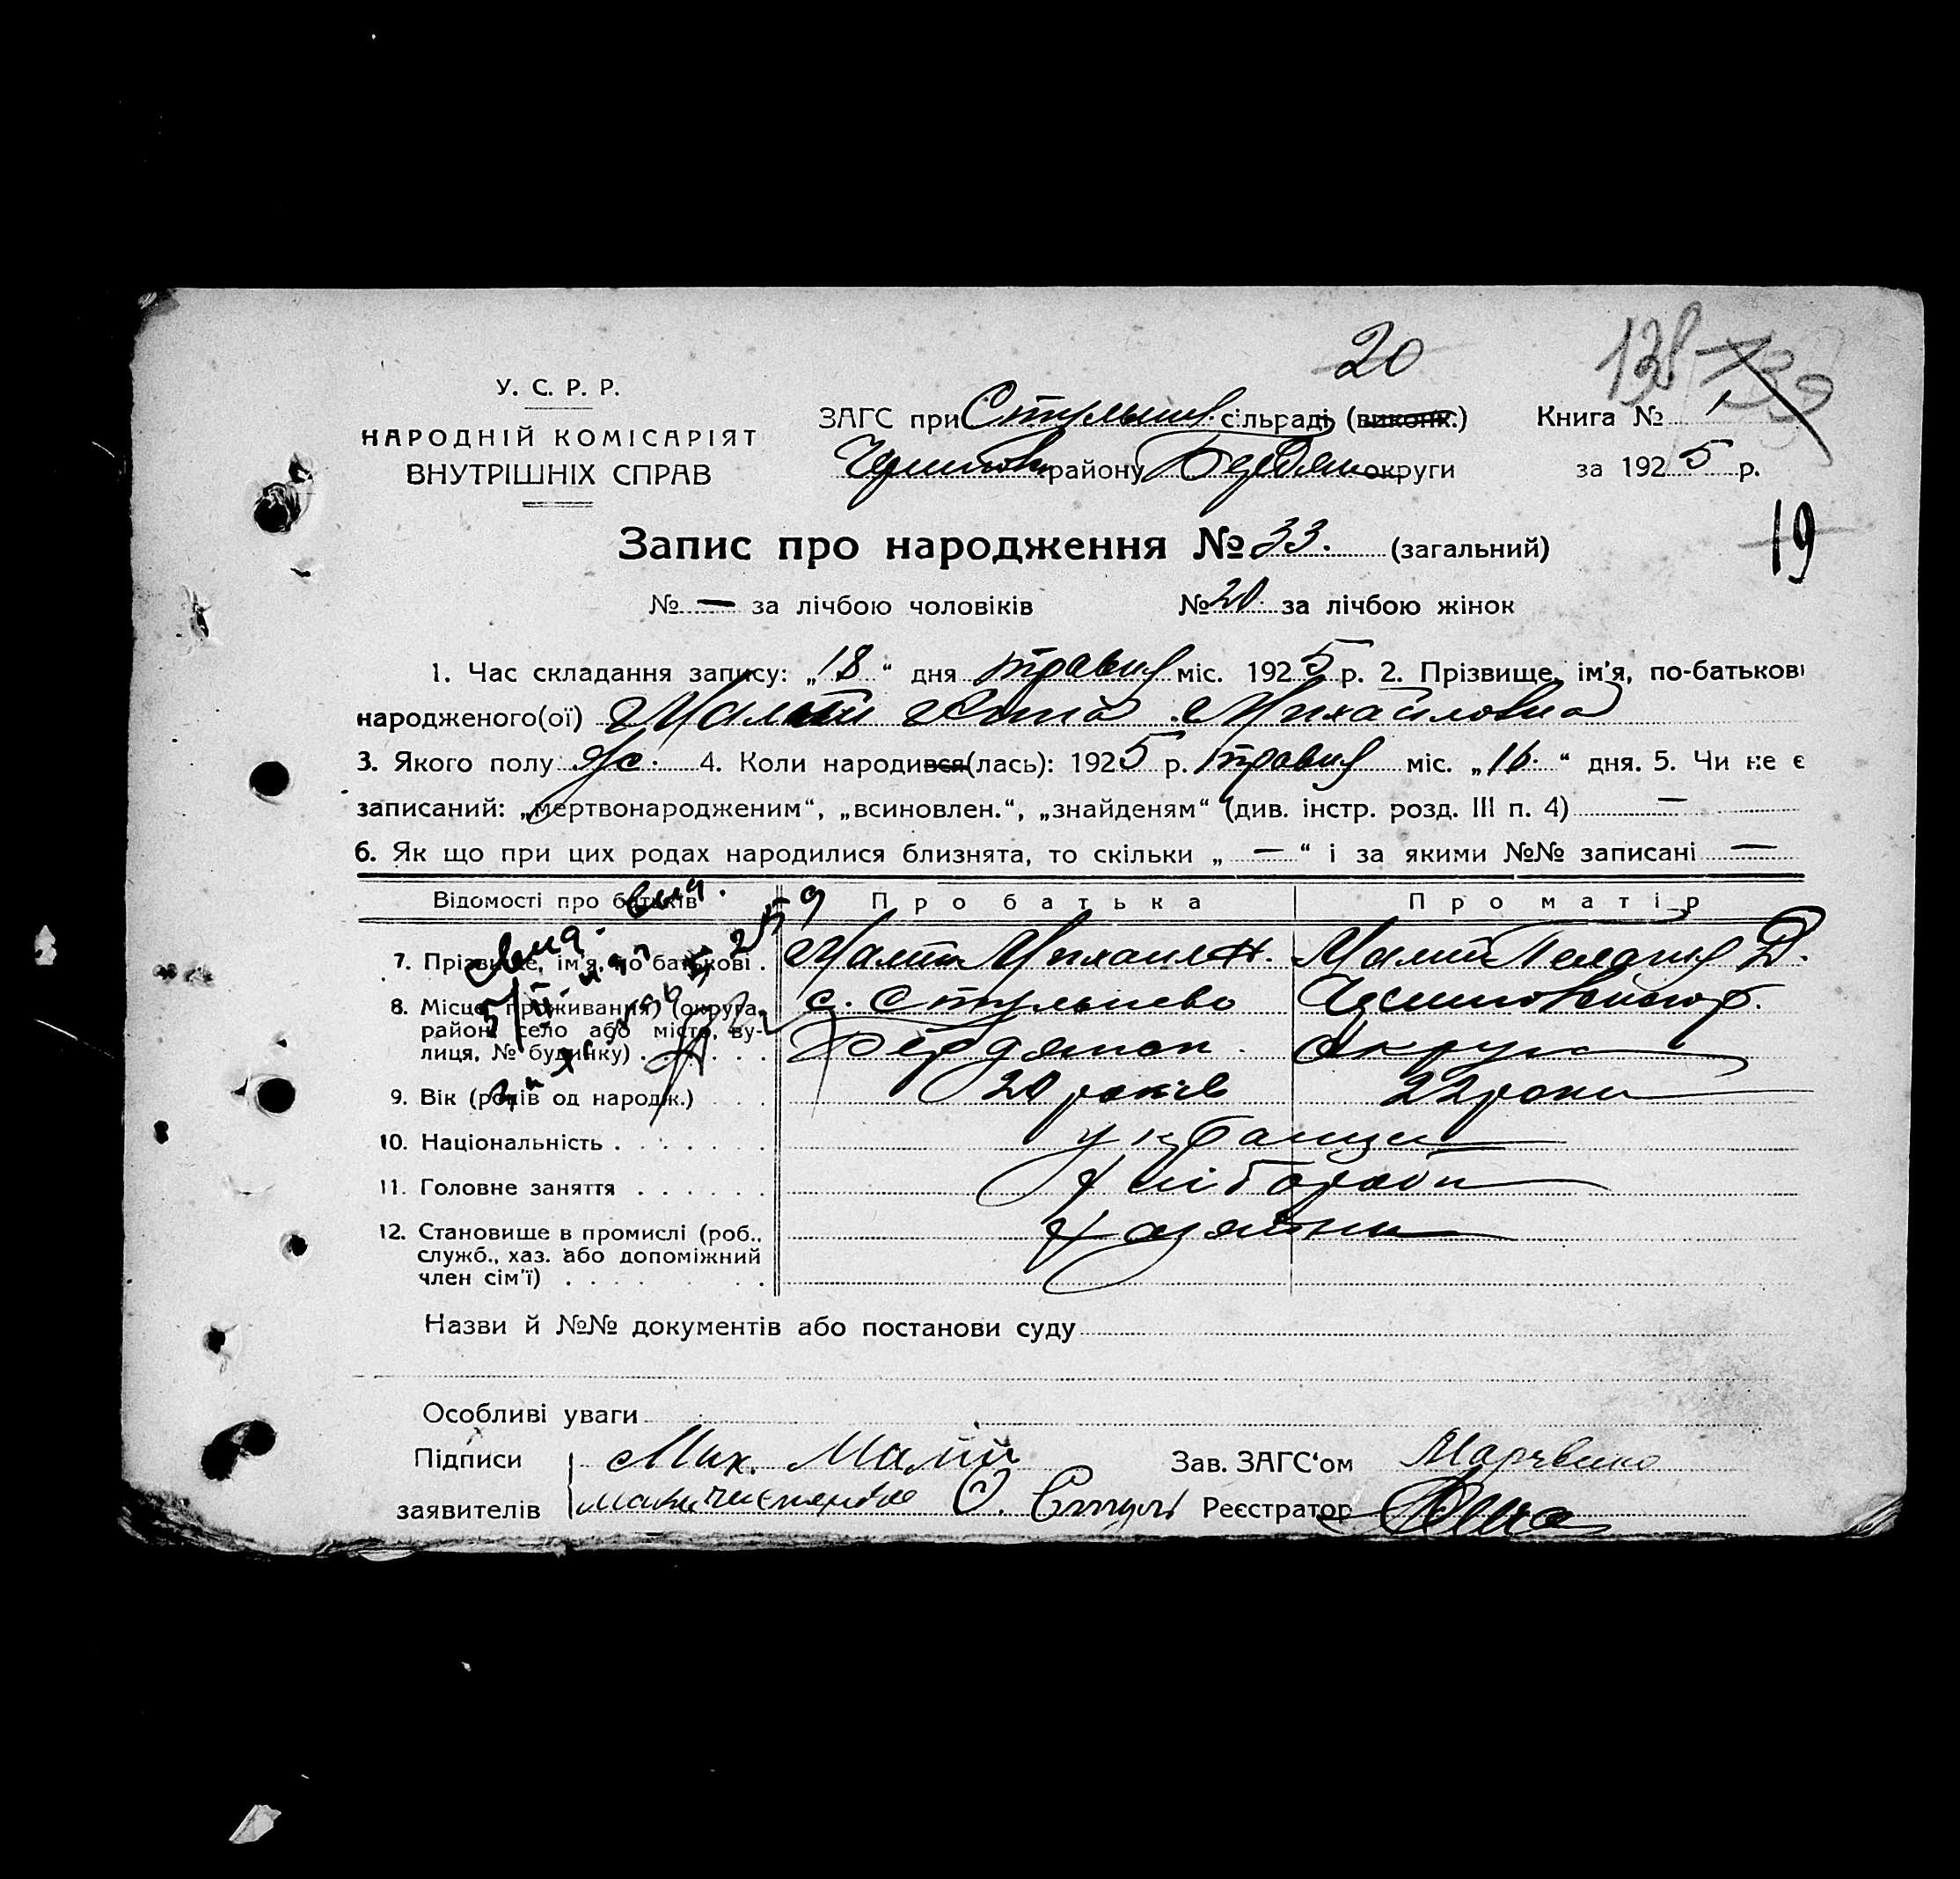 20
138 139
У. С. Р. Р.
НАРОДНІЙ КОМІСАРІЯТ
ВНУТРІШНІХ СПРАВ
ЗАГС при сільраді (виконк.) Книга № 1
району Бердян округи за 1925 р.
19
Запис про народження № 33. (загальний)
№ — за лічбою чоловіків № 20 за лічбою жінок
1. Час складання запису: „18“ дня травня міс. 1925 р. 2. Прізвище, ім'я, по-батькові
народженого(ої) Малій Михайловна
3. Якого полу жс. 4. Коли народився(лась): 1925 р. травня міс. „16.“ дня. 5. Чи не є
записаний: „мертвонародженим“, „всиновлен.“, „знайденям“ (див. інстр. розд. III п. 4) —
6. Як що при цих родах народилися близнята, то скільки „—“ і за якими №№ записані —
Відомості про батьків Про батька Про матір
7. Прізвище, ім'я, по батькові . Малій Михаил Н. Малий Д.
8. Місце проживання) (округа, с. Стульнево
район, село або місто, ву-
лиця, № будинку) . . . . Бердянск. Округи
9. Вік (родів од народж.) . . 20 років 22 роки
10. Національність . . . . . .
11. Головне заняття . . . . . . хлібороби
12. Становище в промислі (роб., хазяйни
служб., хаз. або допоміжний
член сім'ї) . . . . . . .
Назви й №№ документів або постанови суду
Особливі уваги
Підписи Мих. Малій Зав. ЗАГС'ом
заявителів О. Реєстратор